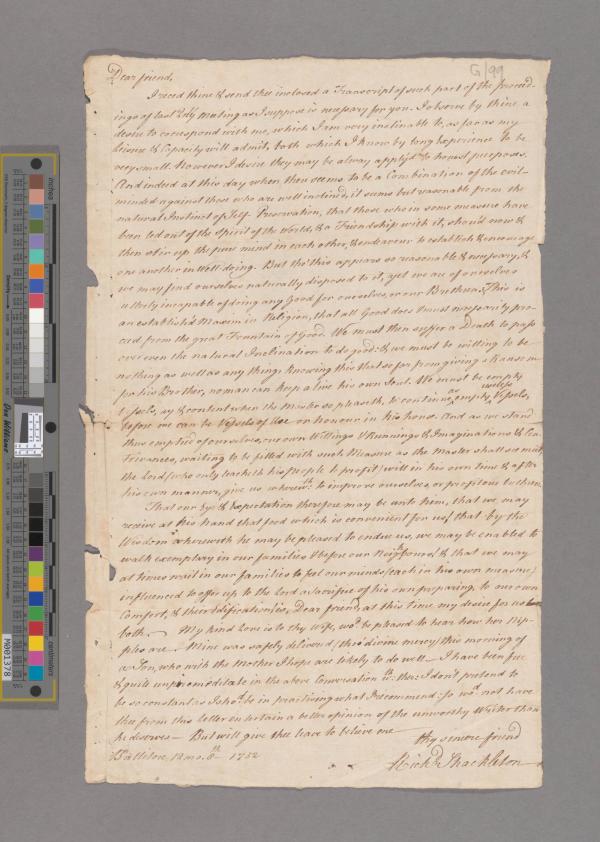 G/99
Dear friend,
I reced thine & send thee inclosed a Transcript of such part of the proceed-
ings of last Qly Meeting as I suppose is necessary for you. I observe by thine a
desire to correspond with me, which I am very inclinable to, as far as my
Leisure & Capacity will admit, both which I know by long Experience to be
very small. However I desire they may be alway applyed to honest purposes.
And indeed at this day when there seems to be a Combination of the evil-
minded against those who are well inclined, it seems but reasonable from the
natural Instinct of Self Preservation, that those who in some measure have
been led out of the Spirit of the World, & a Friendship with it, should now &
then stir up the pure mind in each other, & endeavour to establish & encourage
one another in Well-doing. But tho' this appears so reasonable & necessary, &
we may find ourselves naturally disposed to it, yet we are of ourselves
utterly incapable of doing any Good for ourselves, or our Brethren. This is
an establish'd Maxim in Religion, that all Good does & must necessarily pro-
ceed from the great Fountain of Good. We must then suffer a Death to pass
over even the natural Inclination to do good: & we must be willing to be
nothing as well as any thing: knowing this that so far from giving a Ransom
for his Brother, no man can keep alive his own Soul. We must be empty
Vessels, ay & content when the Master so pleaseth, to continue as empty useless Vessels,
before we can be Vessels of Use or honour in his house. And as we stand
thus emptied of ourselves, our own Willings & Runnings & Imaginations & Con
trivances, waiting to be filled with such Measure as the Master shall see meet,
the Lord (who only teacheth his People to profit) will in his own time & after
his own manner, give us wherewth. to improve ourselves, or profit our brethren.
That our eye & Expectation therefore may be unto him, that we may
receive at his hand that food which is convenient for us; that by the
Wisdom wherewith he may be pleased to endue us, we may be enabled to
walk exemplary in our families & before our Neighbours; & that we may
at times wait in our families to feel our minds (each in his own measure)
influenced to offer up to the Lord a Sacrifice of his own preparing, to our own
Comfort, & their Edification, is, Dear friend, at this time my desire for us
both. My kind Love is to thy Wife, wod. be pleased to hear how her Nip-
ples are. Mine was safely delivered (thro' divine mercy) this morning of
a Son, who with the Mother I hope are likely to do well. I have been free
& quite unpremeditate in the above Conversation wth. thee: I don't pretend to
be so constant as I shod. be in practising what I recommend: so wod. not have
thee from this letter entertain a better opinion of the unworthy Writer than
he deserves — But will give thee leave to believe one
thy sincere friend
Richd. Shackleton
Ballitore 12 mo. 8th 1752
inches
centimetres
Don Williams
M001378